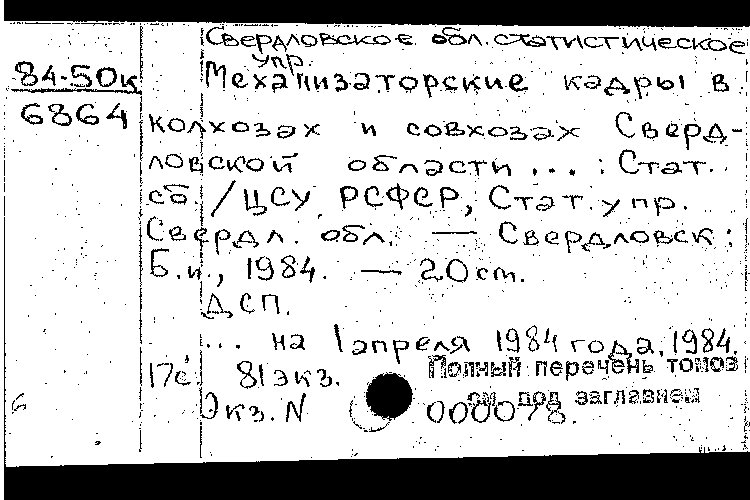 Свердловское обл. статистическое
упр.
84-50к
6864
Механизаторские кадры в
колхозах и совхозах Сверд-
ловской области ... : Стат.
сб. / ЦСУ РСФСР, Стат. упр.
Свердл. обл. — Свердловск :
Б.и., 1984. — 20 см.
ДСП.
... на 1 апреля 1984 года. 1984.
17с. 81 экз.
Полный перечень томов
см. под заглавием
Экз. N 000078.
6